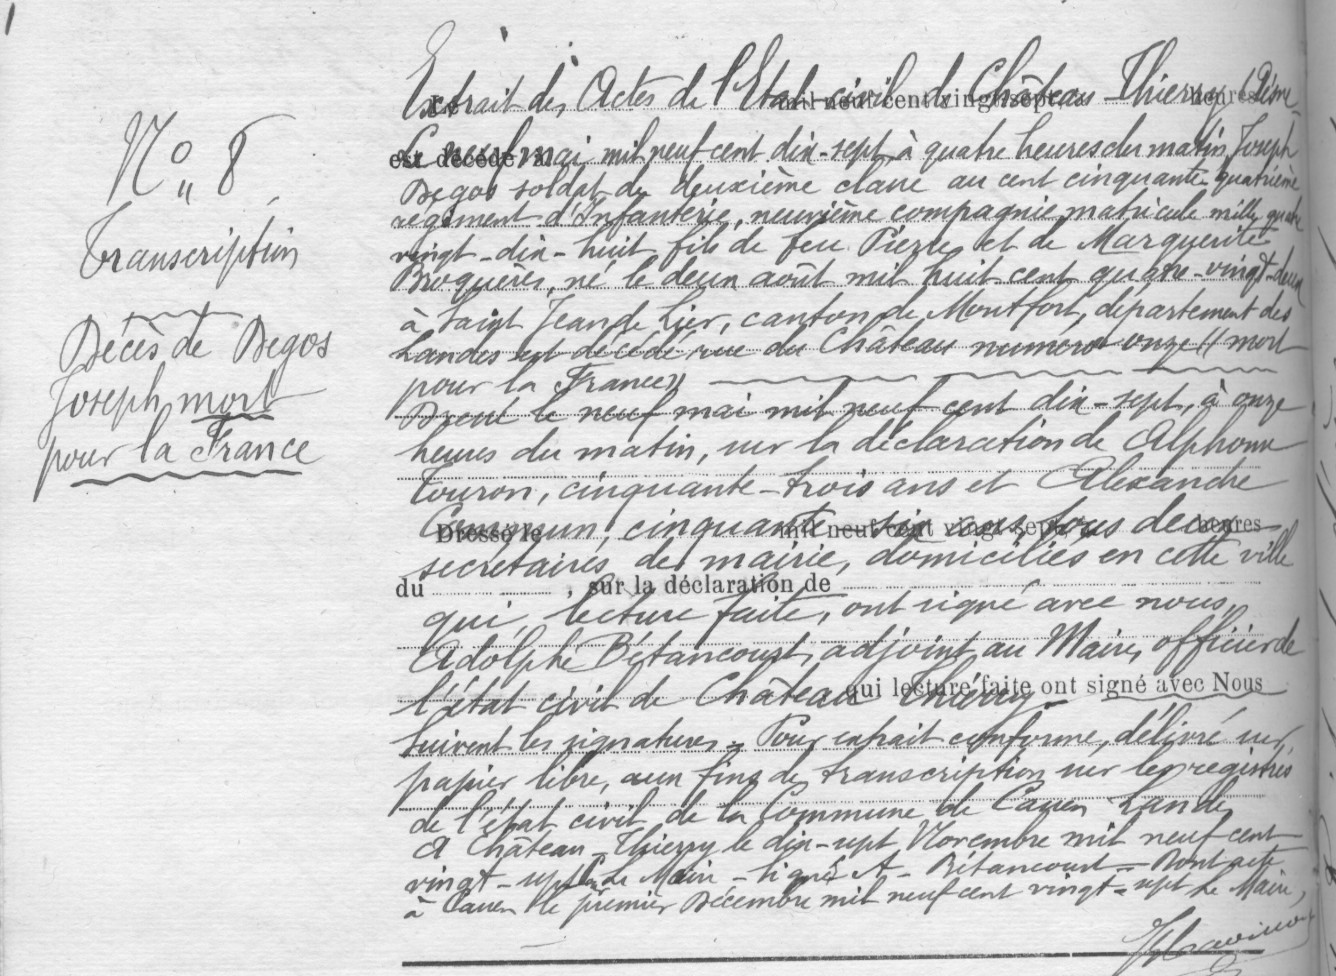 N° 8
Transcription
Décès de Begos
Joseph, mort
pour la France
Extrait des Actes de l'Etat-civil de Château Thierry (Aisne
Le neuf mai mil neuf cent dix-sept à quatre heures du matin, Joseph
Begos soldat de deuxième classe au cent cinquante-quatrième
régiment d'Infanterie, neuvième compagnie, matricule mille quatre
vingt-dix-huit fils de feu Pierre et de Marguerite
Broquères, né le deux août mil huit cent quatre-vingt-deux
à Saint Jean de Lier, canton de Montfort, département des
Landes est décédé rue du Château numéro onze "mort
pour la France"
Dressé le neuf mai mil neuf cent dix-sept, à onze
heures du matin, sur la déclaration de Alphonse
Touron, cinquante-trois ans et Alexandre
cinquante-six ans, tous deux
secrétaires de mairie, domiciliés en cette ville
qui, lecture faite, ont signé avec nous,
Adolphe Bétancourt, adjoint au Maire, officier de
l'état civil de Château Thierry.
Suivent les signatures. Pour extrait conforme, délivré sur
papier libre, aux fins de transcription sur les registres
de l'état civil de la Commune de Cauen Landes
A Château-Thierry le dix-sept Novembre mil neuf cent
vingt-sept Le Maire - Signé A. Bétancourt - Dont acte
à Cauen le premier Décembre mil neuf cent vingt-sept Le Maire,
Le
mil neuf cent vingt-sept, à
heures
est décédé à
Dressé le
mil neuf cent vingt-sept, à
heures
du , sur la déclaration de
qui lecture faite ont signé avec Nous